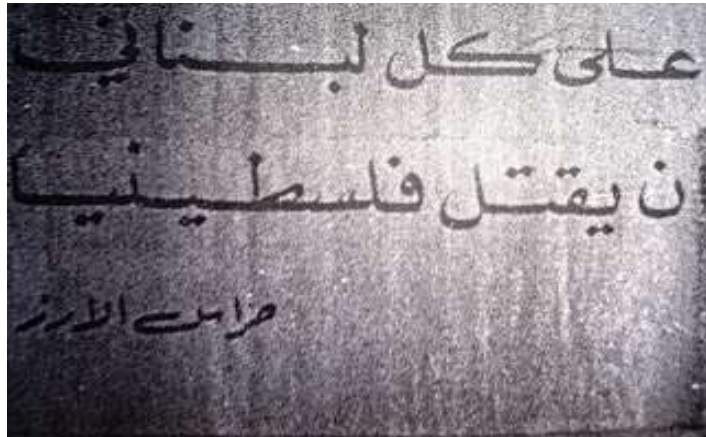 على كل لبناني
ن يقتل فلسطينيا
حراس الارز